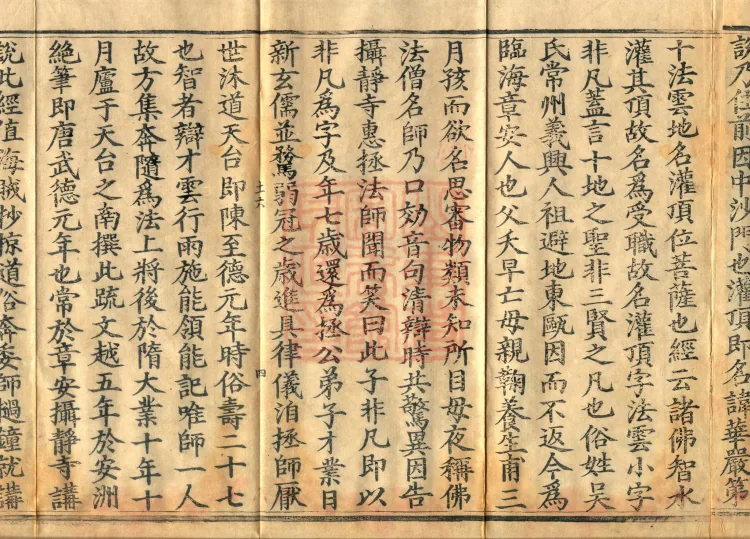 諮乃住前因中沙門也灌頂即名諱華嚴第
十法雲地名灌頂位菩薩也經云諸佛智水
灌其頂故名為受職故名灌頂字法雲小字
非凡蓋言十地之聖非三賢之凡也俗姓吳
氏常州義興人祖避地東甌因而不返今為
臨海章安人也父夭早亡母親鞠養生甫三
月孩而欲名思審物類未知所目母夜稱佛
法僧名師乃口効音句清辯時共驚異因告
攝靜寺惠拯法師聞而笑曰此子非凡即以
非凡為字及年七歲還為拯公弟子才業日
新玄儒並騖弱冠之歲進具律儀洎拯師厭
世沐道天台即陳至德元年時俗壽二十七
土六
四
也智者辯才雲行雨施能領能記唯師一人
故方集奔隨為法上將後於隋大業十年十
月廬于天台之南撰此䟽文越五年於安洲
絕筆即唐武德元年也常於章安攝靜寺講
說此經值海賊抄掠道俗奔委師撾鐘就講